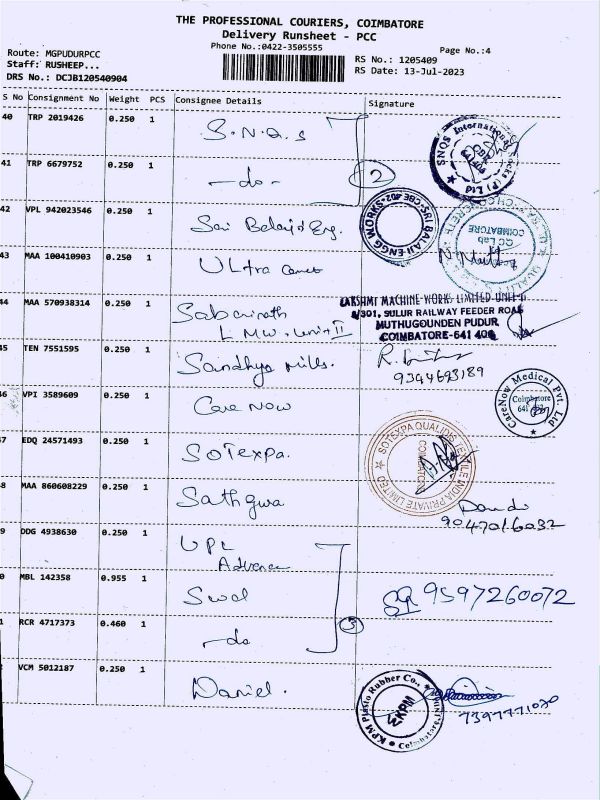 THE PROFESSIONAL COURIERS, COIMBATORE
Delivery Runsheet - PCC
Phone No.:0422-3505555
Page No.:4
Route: MGPUDURPCC
Staff: RUSHEEP...
DRS No.: DCJB120540904
RS No.: 1205409
RS Date: 13-Jul-2023
S No Consignment No Weight PCS Consignee Details Signature
40 TRP 2019426 0.250 1 S.N.Q.S
41 TRP 6679752 0.250 1 -do- 2
42 VPL 942023546 0.250 1 Sri Balaji Eng.
43 MAA 100410903 0.250 1 ULtra
44 MAA 570938314 0.250 1 Sabarinath
LMW. Unit II
LAKSHMI MACHINE WORKS LIMITED UNIT-II
8/301, SULUR RAILWAY FEEDER ROAD
MUTHUGOUNDEN PUDUR
COIMBATORE-641 406
5 TEN 7551595 0.250 1 Sandhya Mills.
9394693189
46 VPI 3589609 0.250 1 Care Now
CareNow Medical Pvt. Ltd
Coimbatore
7 EDQ 24571493 0.250 1 SOTEXPA.
SOTEXPA QUALIDIS TEXTILE INDIA PRIVATE LIMITED
COIMBATORE
8 MAA 860608229 0.250 1 Sathguru
9047016032
9 DDG 4938630 0.250 1 UPL
Advance
0 MBL 142358 0.955 1
9597260072
1 RCR 4717373 0.460 1 -do 3
VCM 5012187 0.250 1 Daniel.
KPM Plasto Rubber Co.,
KPM
Coimbatore
7397771020
SRI BALAJI ENGG WORKS
QC Lab
COIMBATORE